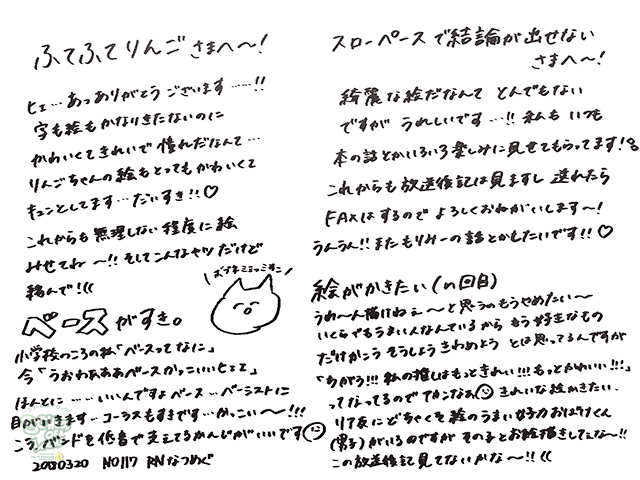 ふてふてりんごさまへ〜!
ヒェ…あっありがとうございます……!!
字も絵もかなりきたないのに
かわいくてきれいで憧れだなんて…
りんごちゃんの絵もとってもかわいくて
キュンとしてます…だいすき!!♡
これからも無理しない程度に絵
みせてね〜!!そしてこんなヤツだけど
絡んで!((
ベースがすき。
小学校のころの私「ベースってなに」
今「うおわあああベースかっこいいヒェェ」
ほんとに……いいんですよベース…ベーシストに
目がいきます…コーラスもすきです…かっこい〜!!!
こう、バンドを低音で支えてるかんじがいいです
20180320 NO117 RNなつめぐ
スローペースで結論が出せない
さまへ〜!
綺麗な絵だなんてとんでもない
ですがうれしいです…!!私もいつも
本の話とかいろいろ楽しみに見せてもらってます!
これからも放送後記は見ますし送れたら
FAXはするのでよろしくおねがいします〜!
うんうん!!またもりみーの話とかしたいです!!♡
絵がかきたい(の回目)
うわ〜ん描けねぇ〜と思うのもうやめたい〜
いくらでもうまい人なんているからもう好きなもの
だけかこうそうしようきわめようとは思ってるんですが
「ちがう!!!私の推しはもっときれい!!!もっとかわいい!!!」
ってなってるのでてかなぁ きれいな絵かきたい.
リア友にどちゃくそ絵のうまい好力おばけくん
(男子)がいるのですがその子とお絵描きしてぇな〜!!
この放送後記見てないかな〜!!((